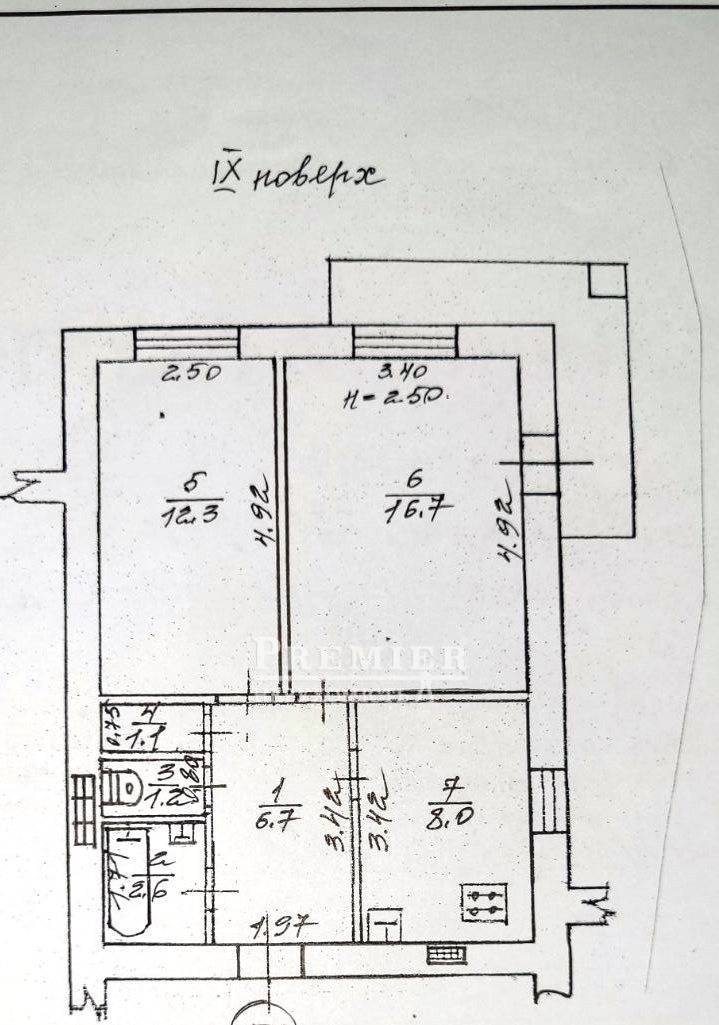 IX поверх
2.50
3.40
H = 2.50
5
12.3
4.92
6
16.7
4.92
PREMIER
0.75
4
1.1
3
1.2
0.80
1
6.7
3.42
3.42
7
8.0
1.71
2
2.6
1.97